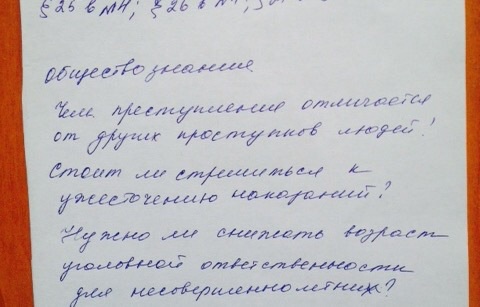 § 25 в №4; § 26 в №
обществознание
Чем преступление отличается
от других проступков людей!
Стоит ли стремиться к
ужесточению наказаний?
Нужно ли снижать возраст
уголовной ответственности
для несовершеннолетних?